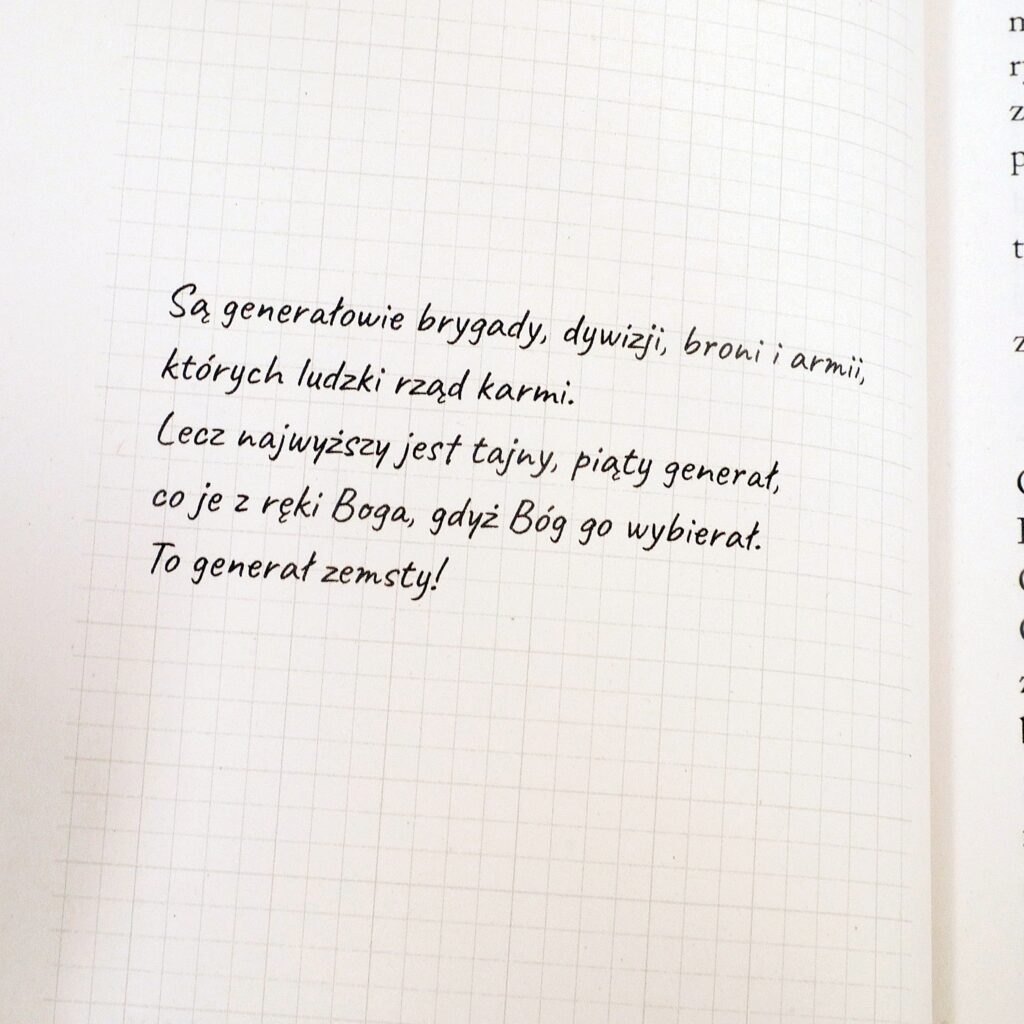 Są generałowie brygady, dywizji, broni i armii,
których ludzki rząd karmi.
Lecz najwyższy jest tajny, piąty generał,
co je z ręki Boga, gdyż Bóg go wybierał.
To generał zemsty!